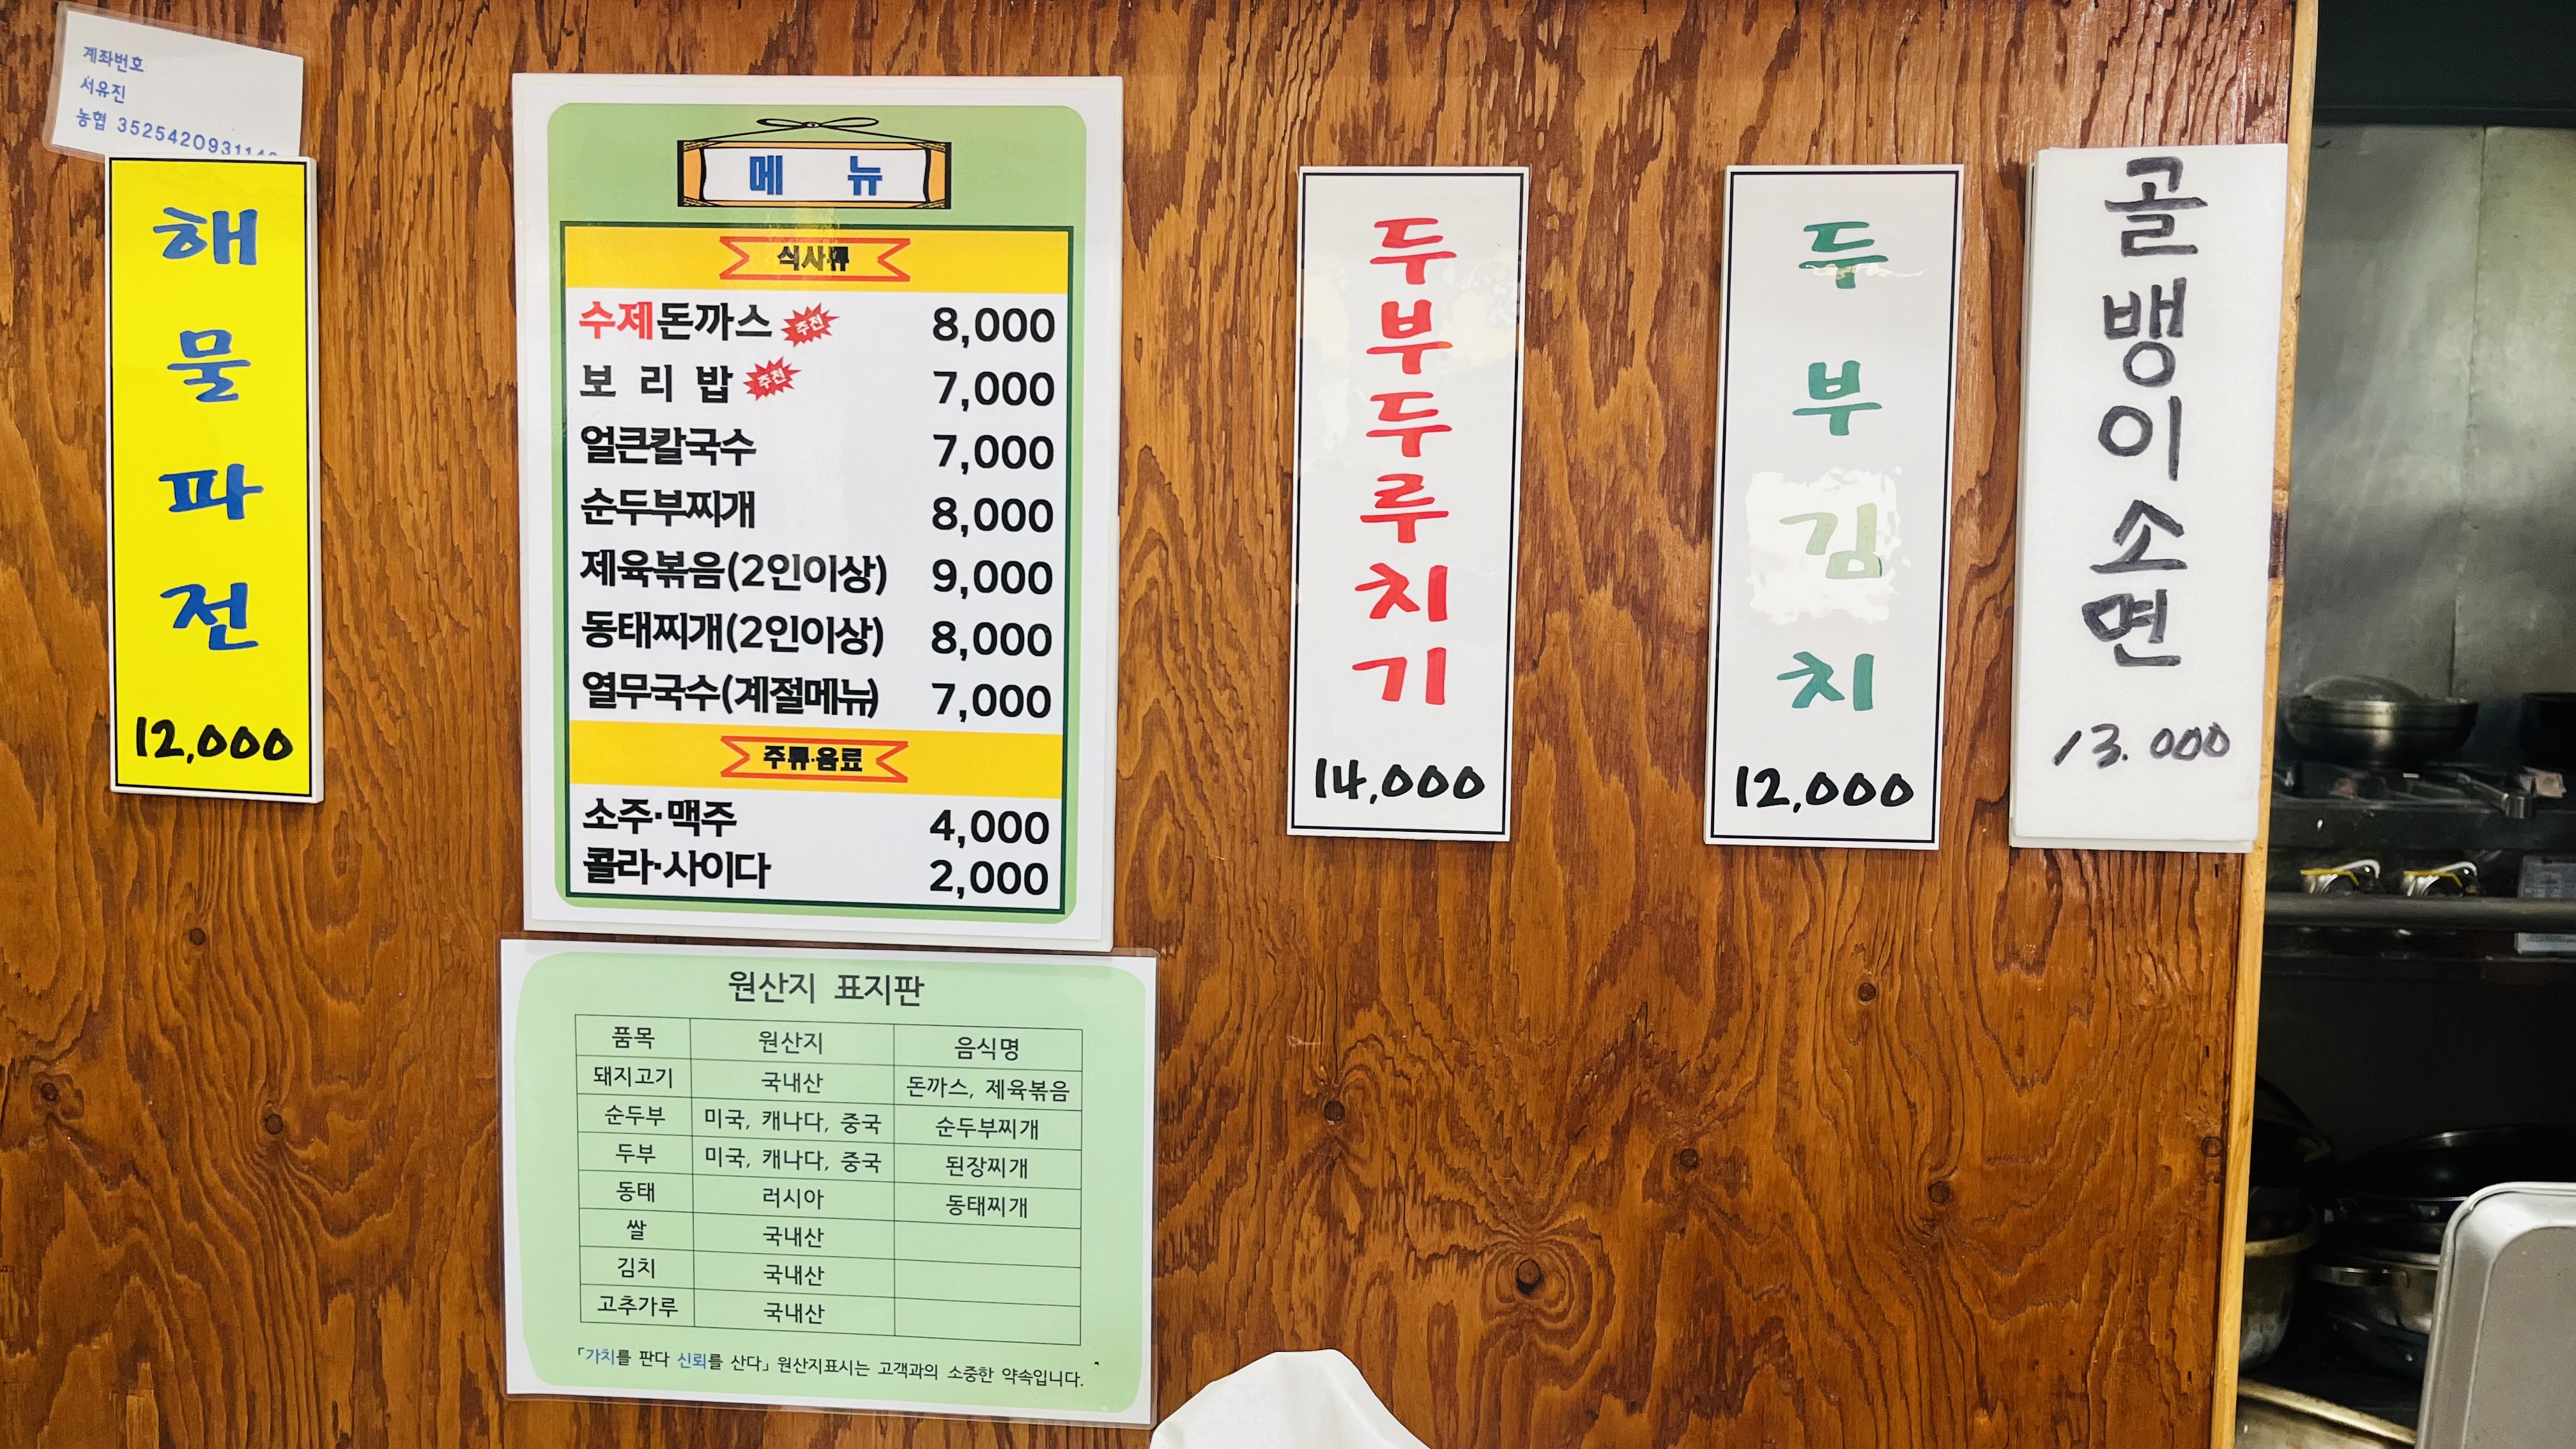 계좌번호
서유진
농협
해물파전
12,000
메뉴
식사류
수제돈까스 추천 8,000
보리밥 추천 7,000
얼큰칼국수 7,000
순두부찌개 8,000
제육볶음(2인이상) 9,000
동태찌개(2인이상) 8,000
열무국수(계절메뉴) 7,000
주류·음료
소주·맥주 4,000
콜라·사이다 2,000
원산지 표지판
품목 원산지 음식명
돼지고기 국내산 돈까스, 제육볶음
순두부 미국, 캐나다, 중국 순두부찌개
두부 미국, 캐나다, 중국 된장찌개
동태 러시아 동태찌개
쌀 국내산
김치 국내산
고추가루 국내산
「가치를 판다 신뢰를 산다」 원산지표시는 고객과의 소중한 약속입니다.
두부두루치기
14,000
두부김치
12,000
골뱅이소면
13.000